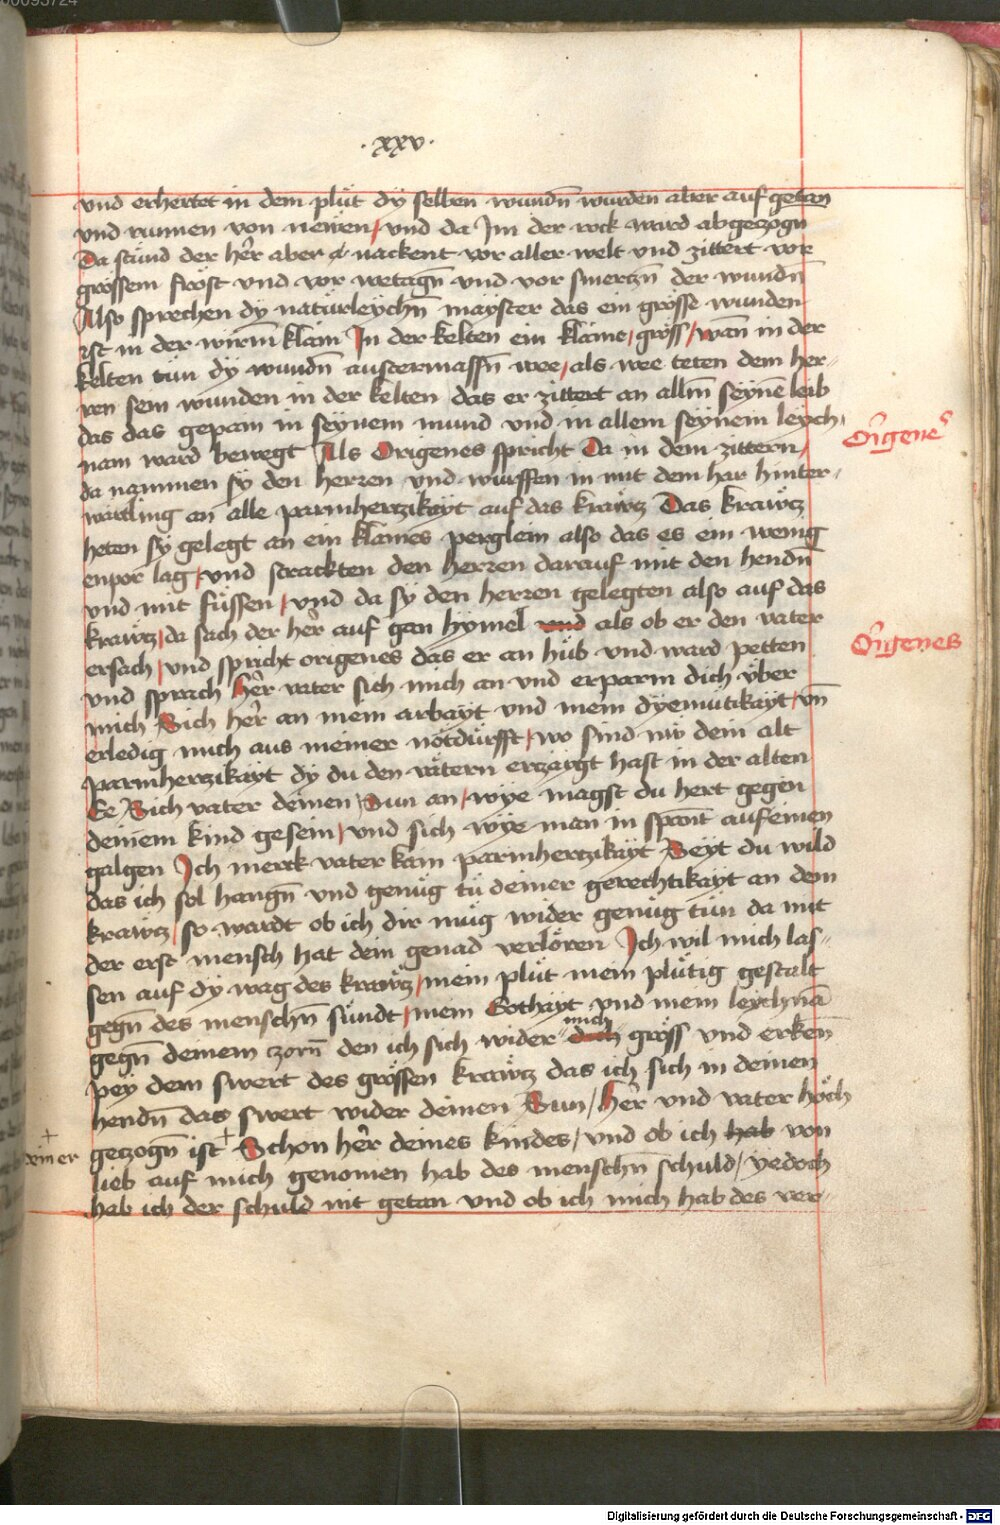 00095724
·xxv·
vnd erhertet in dem plůt dÿ selben wundn̄ wurden aber auf getan
vnd runnen von newen / vnd da Jm der rock ward abgezogn̄
Da stůnd der her̄ aber nackent vor aller welt vnd zittert vor
grössem fröst vnd vor wetagn̄ vnd vor smerczn̄ der wundn̄
Also sprechen dÿ natürleychn̄ mayster das ein grösse wunden
ist in der wirm̄ klain Jn der kelten ein klaine / gröss / wan̄ in der
kelten tün dÿ wundn̄ ausdermassn̄ wee / als wee teten dem her-
ren sein wunden in der kelten das er zittert an allm̄ seÿnē leib
das das gepain in seÿnem mund vnd in allem seÿnem leych-
nam ward bewegt Als Origenes spricht Da in dem zittern /
Origenes
da nammen sÿ den herren vnd wurffen in mit dem har hinter-
wärtling an alle parmherczikayt auf das kräwcz Das kräwcz
heten sÿ gelegt an ein klaines perglein also das es ein wenig
enpor lag / vnd strackten den herren darauf mit den hendn̄
vnd mit füssen / vnd da sÿ den herren gelegten also auf das
kräwcz / da sach der her̄ auf gan hÿmel vnd als ob er den vater
ersach / vnd spricht origenes das er an hůb vnd ward petten
Origenes
vnd sprach her̄ vater sich mich an vnd erparm dich über
mich Sich her̄ an mein arbayt vnd mein dyemütikayt / vn̄
erledig mich aus meiner nötdürfft / wo sind nw dein alt
parmherczikayt dÿ du den vätern erzaygt hast in der alten
Ee Sich vater deinen Sun an / wye magst du hert gegen
deinem kind gesein / vnd sich wye man in spant auf einen
galgen Jch merck vater kain parmherczikayt Seyt du wild
das ich sol hangn̄ vnd genüg tů deiner gerechtikayt an dem
kräwcz / so wardt ob ich dir müg wider genüg tün da mit
der erst mensch hat dein genad verlören Jch wil mich las-
sen auf dÿ wag des kräwcz / mein plůt mein plůtig gestalt
gegn̄ des menschn̄ sündt / mein Gothayt vnd mein leychnā
mich
gegn̄ deinem czorn̄ den ich sich wider dich gröss vnd erken̄
peÿ dem swert des grössen kräwcz das ich sich in deinen
hendn̄ das swert wider deinen Sun / her̄ vnd vater höch
gezogn̄ ist + Schon her̄ deines kindes / vnd ob ich hab von
+
deiner
lieb auf mich genomen hab des menschn̄ schuld / yedoch
hab ich der schuld nit getan vnd ob ich mich hab des ver-
Digitalisierung gefördert durch die Deutsche Forschungsgemeinschaft - DFG